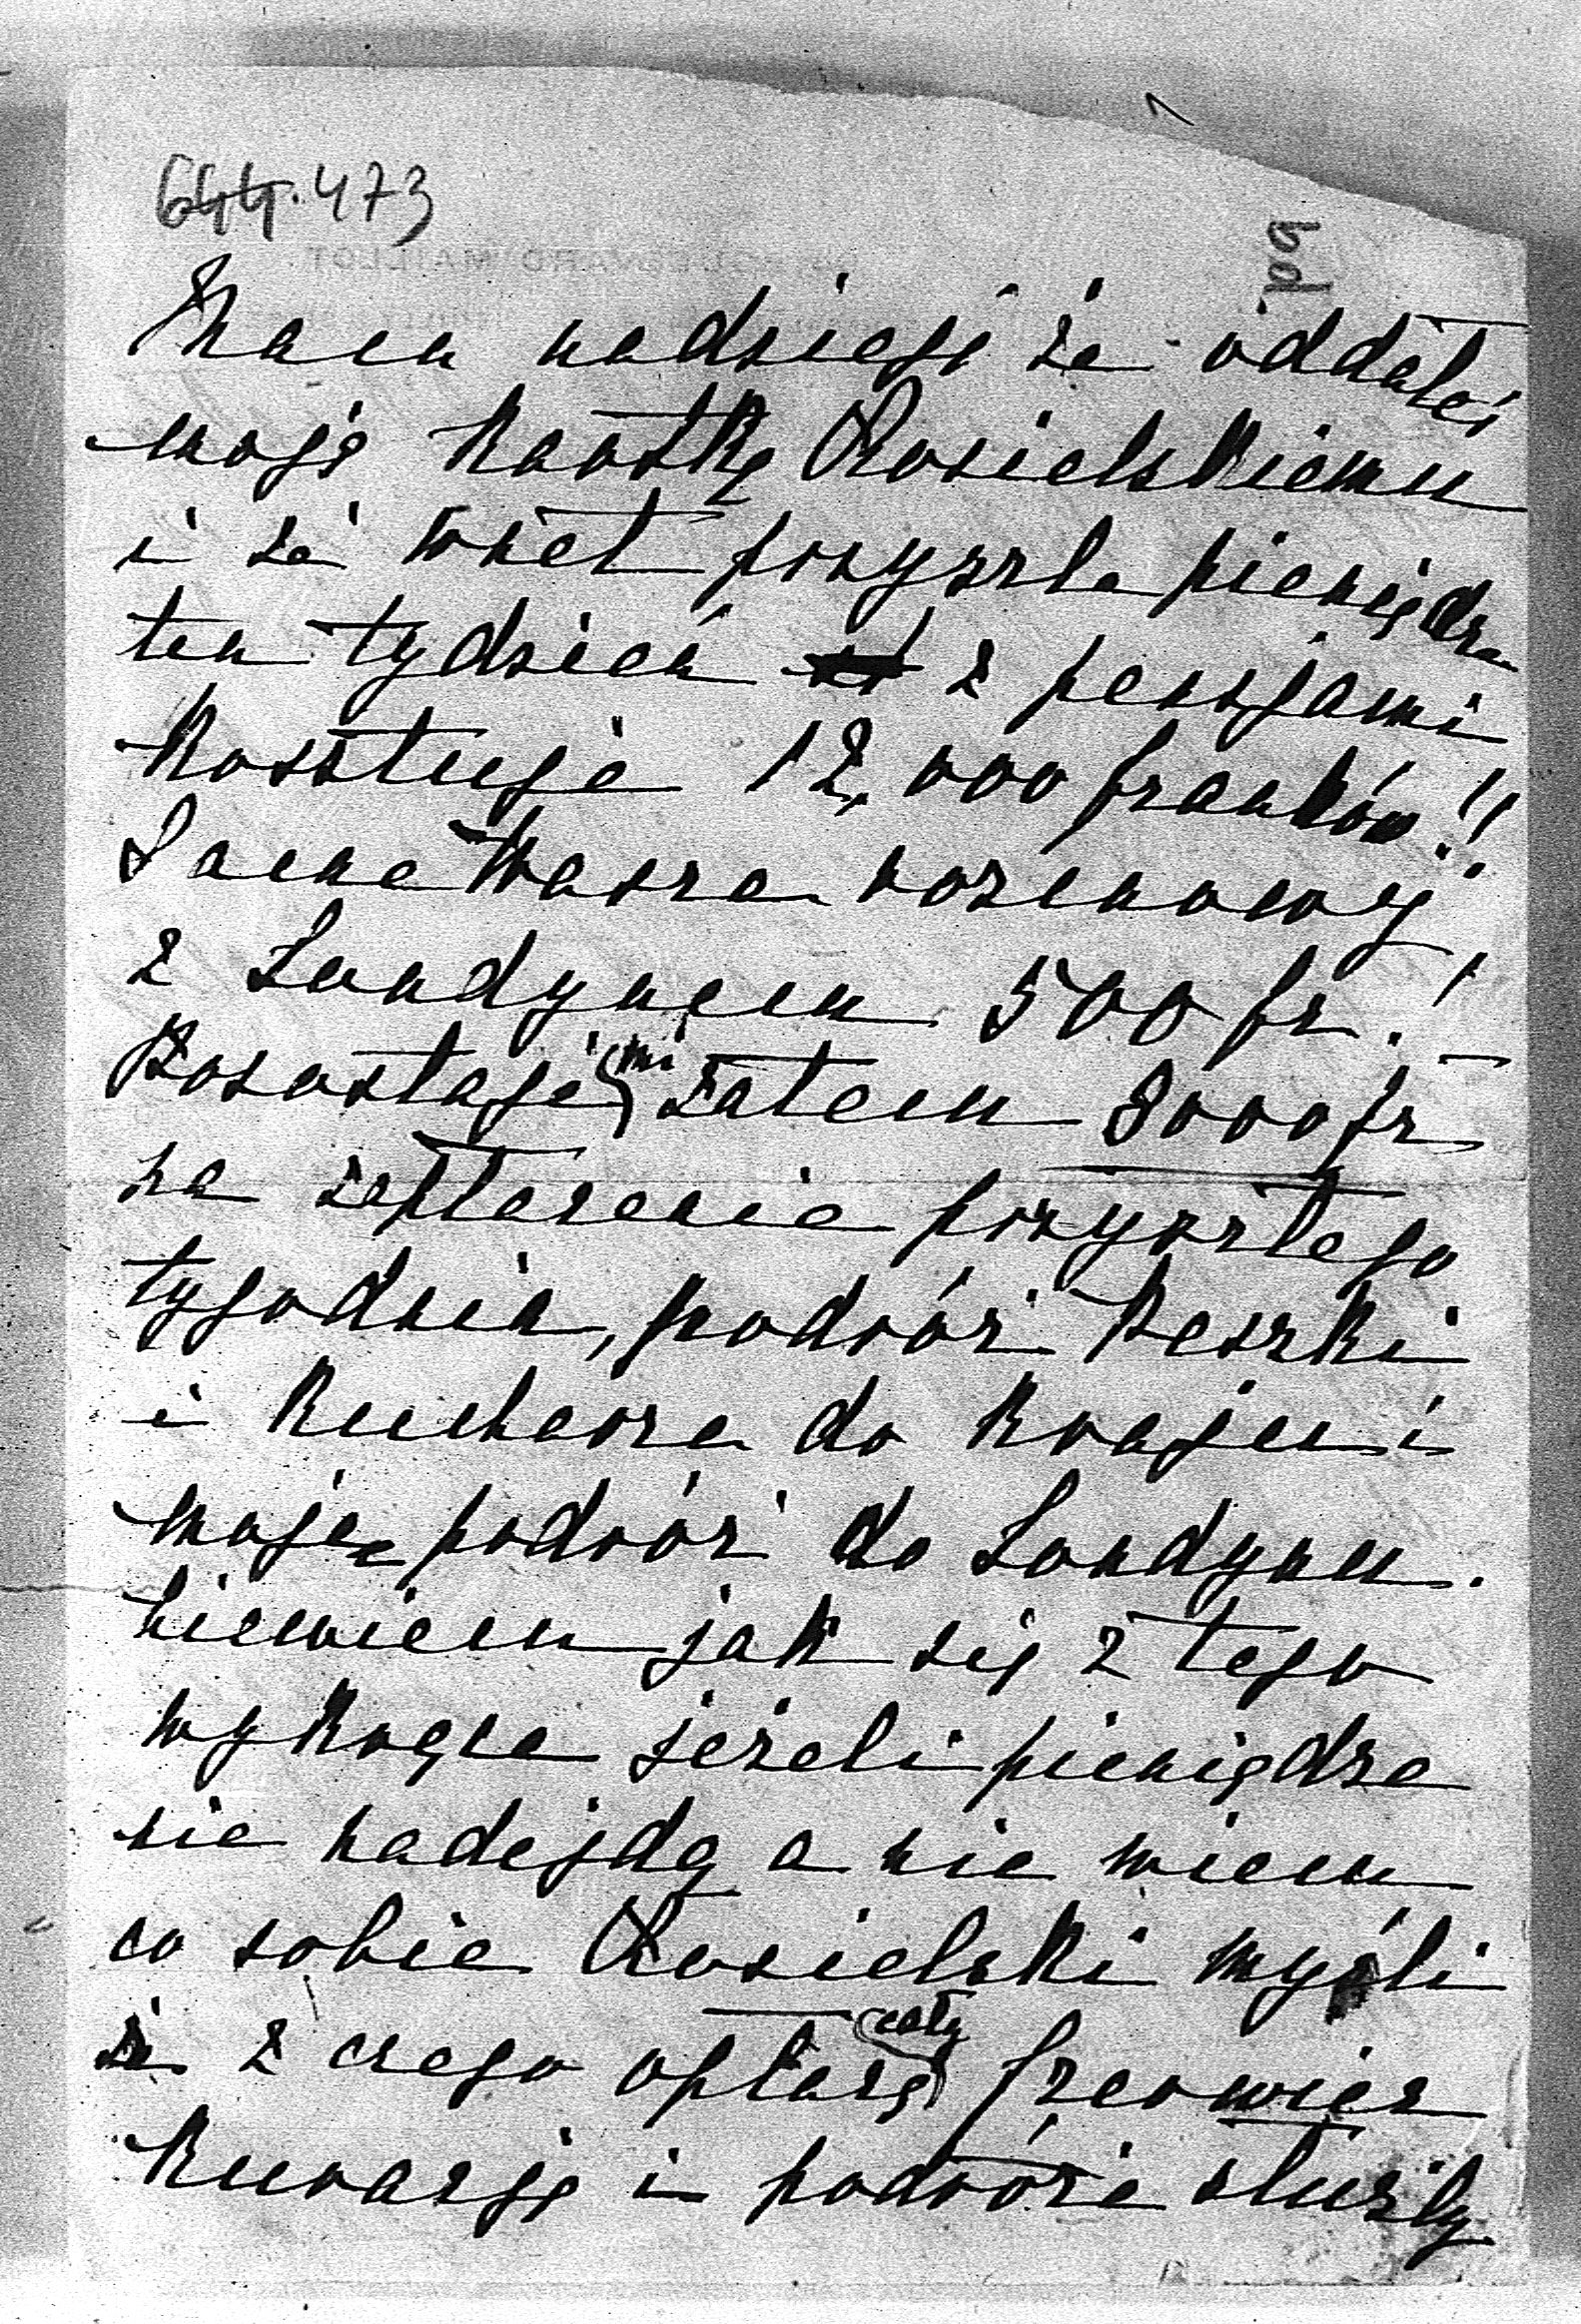 644. 473
bd.
Mam nadzieję że oddałeś
moję kartkę Kosielskiemu
i że wnet przyszle pieniądze
ten tydzień z pensjami
kosztuje 12,000 franków!!
Same Wasze rozmowy
z Londynem 500 fr.!
Pozostaje mi zatem 8000 fr
na zapłacenie przyszłego
tygodnia, podróż Leszki
i Kucharza do kraju i
moje podróż do Londynu.
niewiem jak się z tego
wykręcę jeżeli pieniądze
nie nadejdą a nie wiem
co sobie Kosielski myśli
z czego opłacę cały
kurację i podróże służby